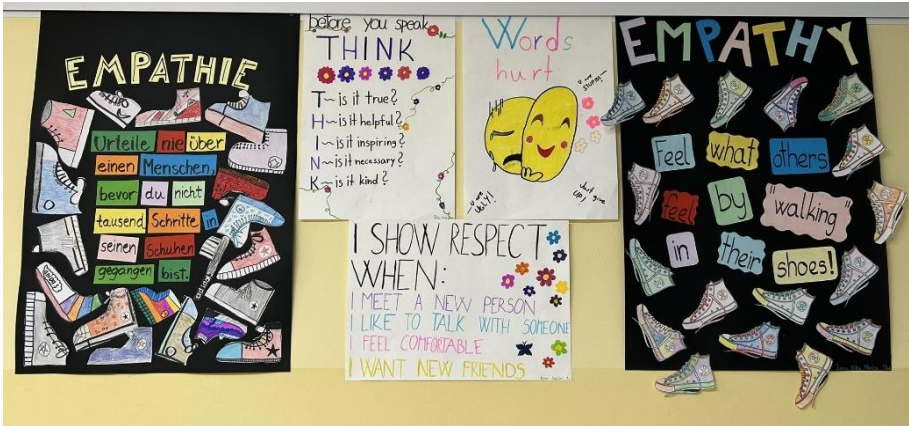 EMPATHIE
Urteile nie über
einen Menschen,
bevor du nicht
tausend Schritte in
seinen Schuhen
gegangen bist.
before you speak
THINK
T ~ is it true?
H ~ is it helpful?
I ~ is it inspiring?
N ~ is it necessary?
K ~ is it kind?
Words
hurt
u are
STUPID
~ u are
UGLY!
shut
UP!
I SHOW RESPECT
WHEN:
I MEET A NEW PERSON
I LIKE TO TALK WITH SOMEONE
I FEEL COMFORTABLE
I WANT NEW FRIENDS
EMPATHY
Feel what others
feel by "walking"
in their shoes!